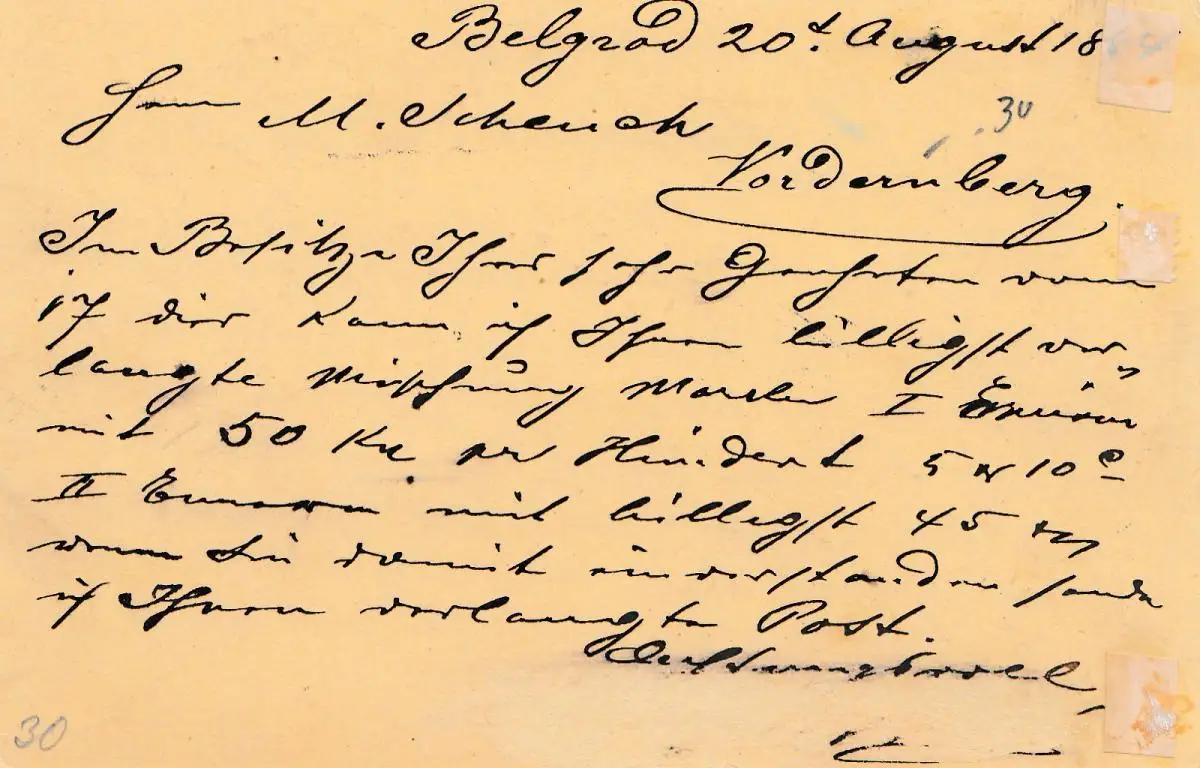 Belgrad 20t. August 18
Herrn M. Scheuch
30
Vordernberg.
Im Besitze Ihres sehr Geehrten vom
17 dies kann ich Ihnen billigst ver„
langte Mischung Marken I
mit 50 Kr per Hundert 5 10
II mit billigst 45
wenn Sie damit einverstanden sende
ich Ihnen verlangte Post.
Achtungsvoll
30